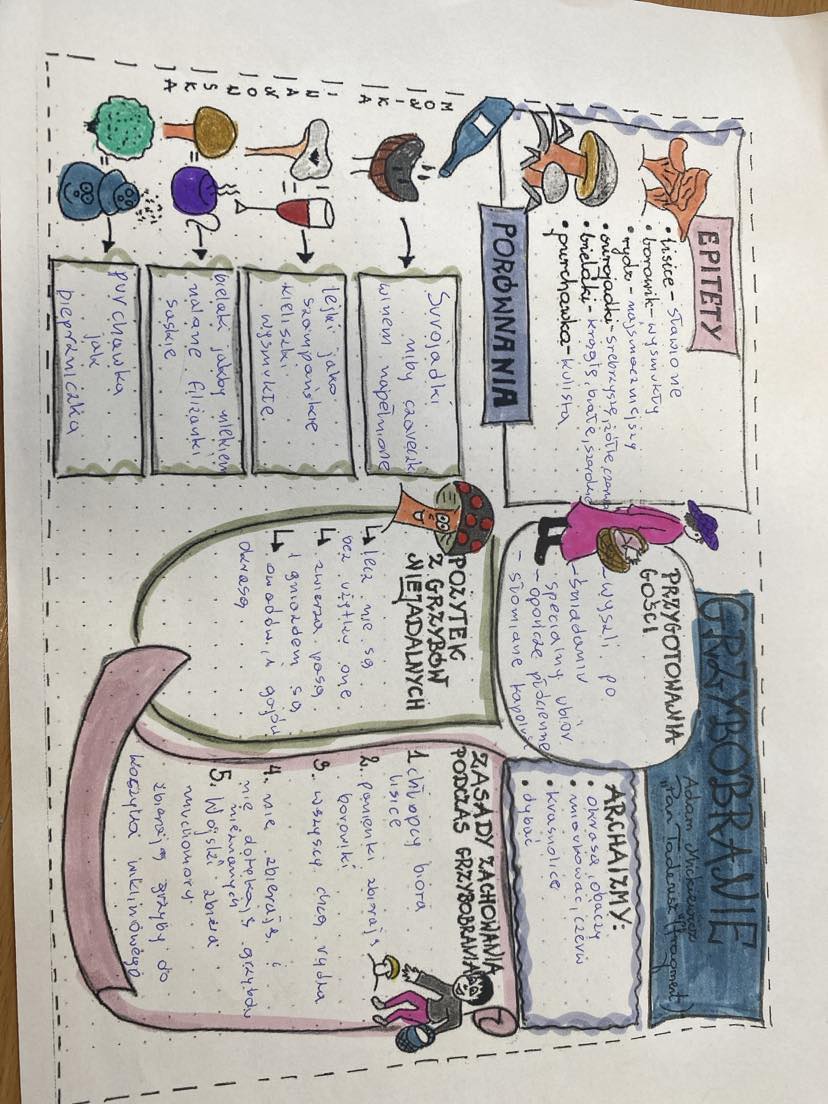 GRZYBOBRANIE
Adam Mickiewicz
"Pan Tadeusz" (fragment)
EPITETY
• lisice - sławione
• borowik - wysmukły
• rydz - najsmaczniejszy
• surojadki - srebrzyste, żółte, czerwone
• bielaki - krągłe, białe, szerokie
• purchawka - kulista
PRZYGOTOWANIA
GOŚCI
- wyszli po
śniadaniu
- specialny ubiór
- opończe płócienne
- słomiane kapelusze
ARCHAIZMY:
• okrasa, obaczy
• miarkować, czerw
• krasnolice
• dybać
PORÓWNANIA
MOWNIKA
I
JANOWSKA
Surojadki
niby czareczki
winem napełnione
lejki jako
szampańskie
kieliszki
wysmukłe
bielaki jakby mlekiem
nalane filiżanki
saskie
purchawka
jak
pieprzniczka
POŻYTEK
Z GRZYBÓW
NIEJADALNYCH
↳ lecz nie są
bez użytku one
↳ zwierza pasą
i gniazdem są
↳ owadów i gajów
okrasą
ZASADY ZACHOWANIA
PODCZAS GRZYBOBRANIA
1. chłopcy biorą
lisice
2. panienki zbierają
borowiki
3. wszyscy chcą rydza
4. nie zbierają i
nie dotykają grzybów
nieznanych
5. Wojski zbiera
muchomory
zbierają grzyby do
koszyka wiklinowego